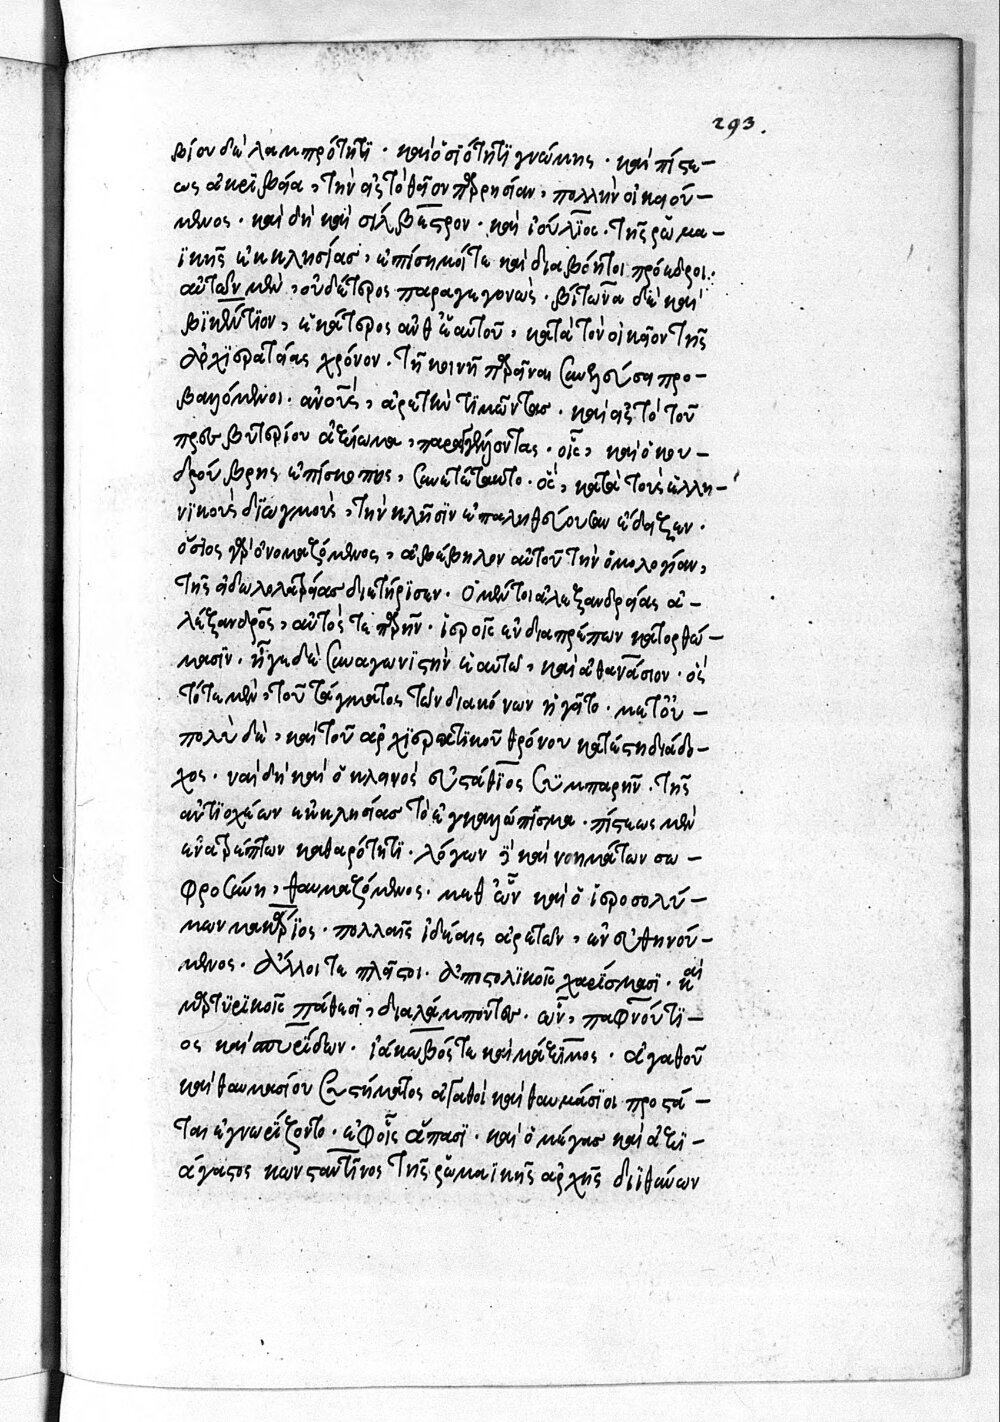 293.
βίου δὲ λαμπρότητι · καὶ ὁσιότητι γνώμης · καὶ πίστε–
ως ἀκριβείᾳ, τὴν ἀξιόθεον παρρησίαν, πολλὴν οἰκειού–
μενος · καὶ δὴ καὶ σίλβεστρον · καὶ ἰούλιος · τῆς ῥωμα–
ϊκῆς ἐκκλησίας, ἐπίσημοί τε καὶ διαβόητοι πρόεδροι.
αὐτῶν μὲν, οὐδέτερος παραγεγονὼς · βίτωνα δὲ καὶ
βικέντιον, ἑκάτερος ἀνθ᾽ ἑαυτοῦ, κατὰ τὸν οἰκεῖον τῆς
ἀρχιερατείας χρόνον · τῇ κοινῇ παρεῖναι συνεδρευούσῃ προ–
βαλόμενοι · ἄνδρας, ἀρετὴν τιμῶντας · καὶ ἀξίᾳ τοῦ
πρεσβυτερίου ἀξίωμα, παραδηλοῦντας · οἷς, καὶ ὁ κου–
δρούβης ἐπίσκοπος, συνετέτακτο · ὃς, κατὰ τοὺς ἑλλη–
νικοὺς διωγμοὺς, τὴν κλῆσιν ἐπαληθεύουσαν ἔδειξεν ·
ὅσιος γὰρ ὀνομαζόμενος, ἀβέβηλον αὐτοῦ τὴν ὁμολογίαν,
τῆς εἰδωλολατρείας διετήρησεν · ὁ μέντοι ἀλεξανδρείας ἀ–
λέξανδρος, αὐτός τε παρῆν · ἱεροῖς ἐνδιαπρέπων κατορθώ–
μασιν · ἦγε δὲ συναγωνιστὴν ἑαυτῷ, καὶ ἀθανάσιον · ὃς
τότε μὲν, τοῦ τάγματος τῶν διακόνων ἡγεῖτο · μετ᾽ οὐ –
πολὺ δὲ, καὶ τοῦ ἀρχιερατικοῦ θρόνου κατέστη διάδο–
χος · ναὶ δὴ καὶ ὁ κλεινὸς εὐστάθιος συμπαρῆν · τῆς
ἀντιοχέων ἐκκλησίας τὸ ἐγκαλλώπισμα · πίστεως μὲν
ἕνεκα τῶν καθαρότητι · λόγων δὲ καὶ νοημάτων σω –
φροσύνῃ, θαυμαζόμενος · μεθ᾽ ὧν καὶ ὁ ἱεροσολύ–
μων μακάριος · πολλαῖς ἰδέαις ἀρετῶν, ἐνευθηνού–
μενος · ἄλλοι τε πλεῖστοι · ἀποστολικοῖς χαρίσμασι · καὶ
μαρτυρικοῖς πάθεσι, διαλάμποντες · ὧν, παφνούτι–
ος καὶ σπυρίδων · ἰάκωβός τε καὶ μάξιμος · ἀγαθοῦ
καὶ θαυμασίου συστήματος ἀγαθοὶ καὶ θαυμάσιοι προστά–
ται ἐγνωρίζοντο · ἐφ᾽ οἷς ἅπασι · καὶ ὁ μέγας καὶ ἀξι–
άγαστος κωνσταντῖνος τῆς ῥωμαϊκῆς ἀρχῆς διϊθύνων